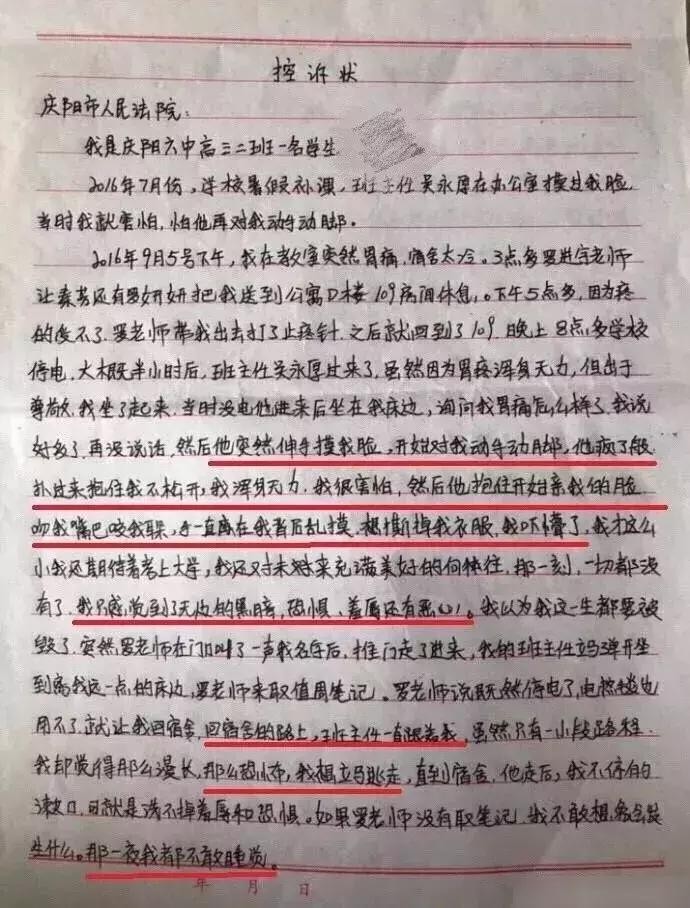 控诉状
庆阳市人民法院:
我是庆阳六中高三二班一名学生
2016年7月份,学校暑假补课,班主任吴永厚在办公室摸过我脸
当时我就害怕,怕他再对我动手动脚。
2016年9月5号下午,我在教室突然胃痛,宿舍太冷。3点多罗进宇老师
让秦芳还有罗妍妍把我送到公寓D楼109房间休息,。下午5点多,因为疼
的受不了.罗老师带我出去打了止疼针.之后就回到了109.晚上8点多学校
停电,大概半小时后,班主任吴永厚过来了,虽然因为胃疼浑身无力,但出于
尊敬,我坐了起来.当时没电他进来后坐在我床边,询问我胃痛怎么样了.我说
好多了.再没说话,然后他突然伸手摸我脸,开始对我动手动脚,他疯了般
扑过来抱住我不松开,我浑身无力.我很害怕,然后他抱住开始亲我的脸
吻我嘴巴咬我耳朵,手一直在我背后乱摸.想撕掉我衣服,我吓懵了,我才这么
小我还期待着考上大学,我还对未来充满美好的向往,那一刻,一切都没
有了.我只感觉到了无边的黑暗,恐惧、羞辱还有恶心!。我以为我这一生都要被
毁了.突然罗老师在门口叫了一声我名字后,推门走了进来,我的班主任立马弹开坐
到离我远一点的床边,罗老师来取值周笔记。罗老师说既然停电了,电热毯也
用不了.就让我回宿舍,回宿舍的路上,班主任一直跟着我,虽然只有一小段路程.
我却觉得那么漫长,那么恐怖,我想立马逃走,直到宿舍,他走后,我不停的
漱口,可就是洗不掉羞辱和恐惧。如果罗老师没有取笔记.我不敢想,我会发
生什么。那一夜我都不敢睡觉。
年 月 日